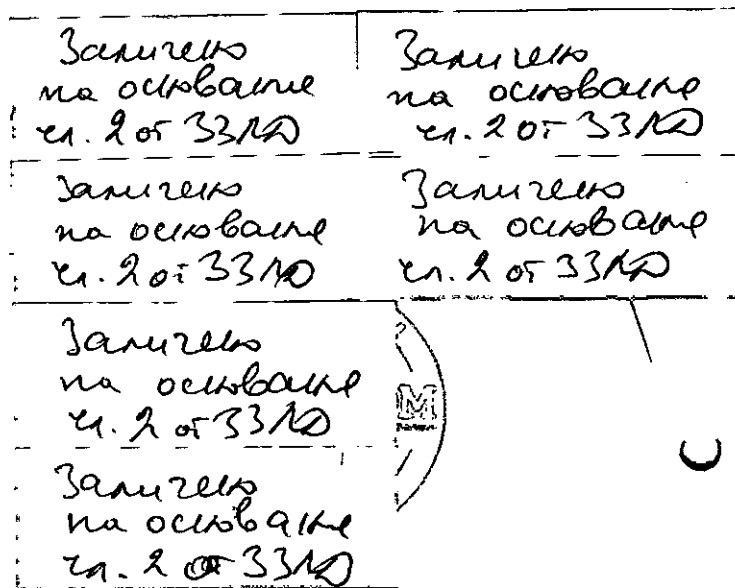 Заличено
на основание
чл. 2 от ЗЗЛД
Заличено
на основание
чл. 2 от ЗЗЛД
Заличено
на основание
чл. 2 от ЗЗЛД
Заличено
на основание
чл. 2 от ЗЗЛД
Заличено
на основание
чл. 2 от ЗЗЛД
М
Заличено
на основание
чл. 2 от ЗЗЛД